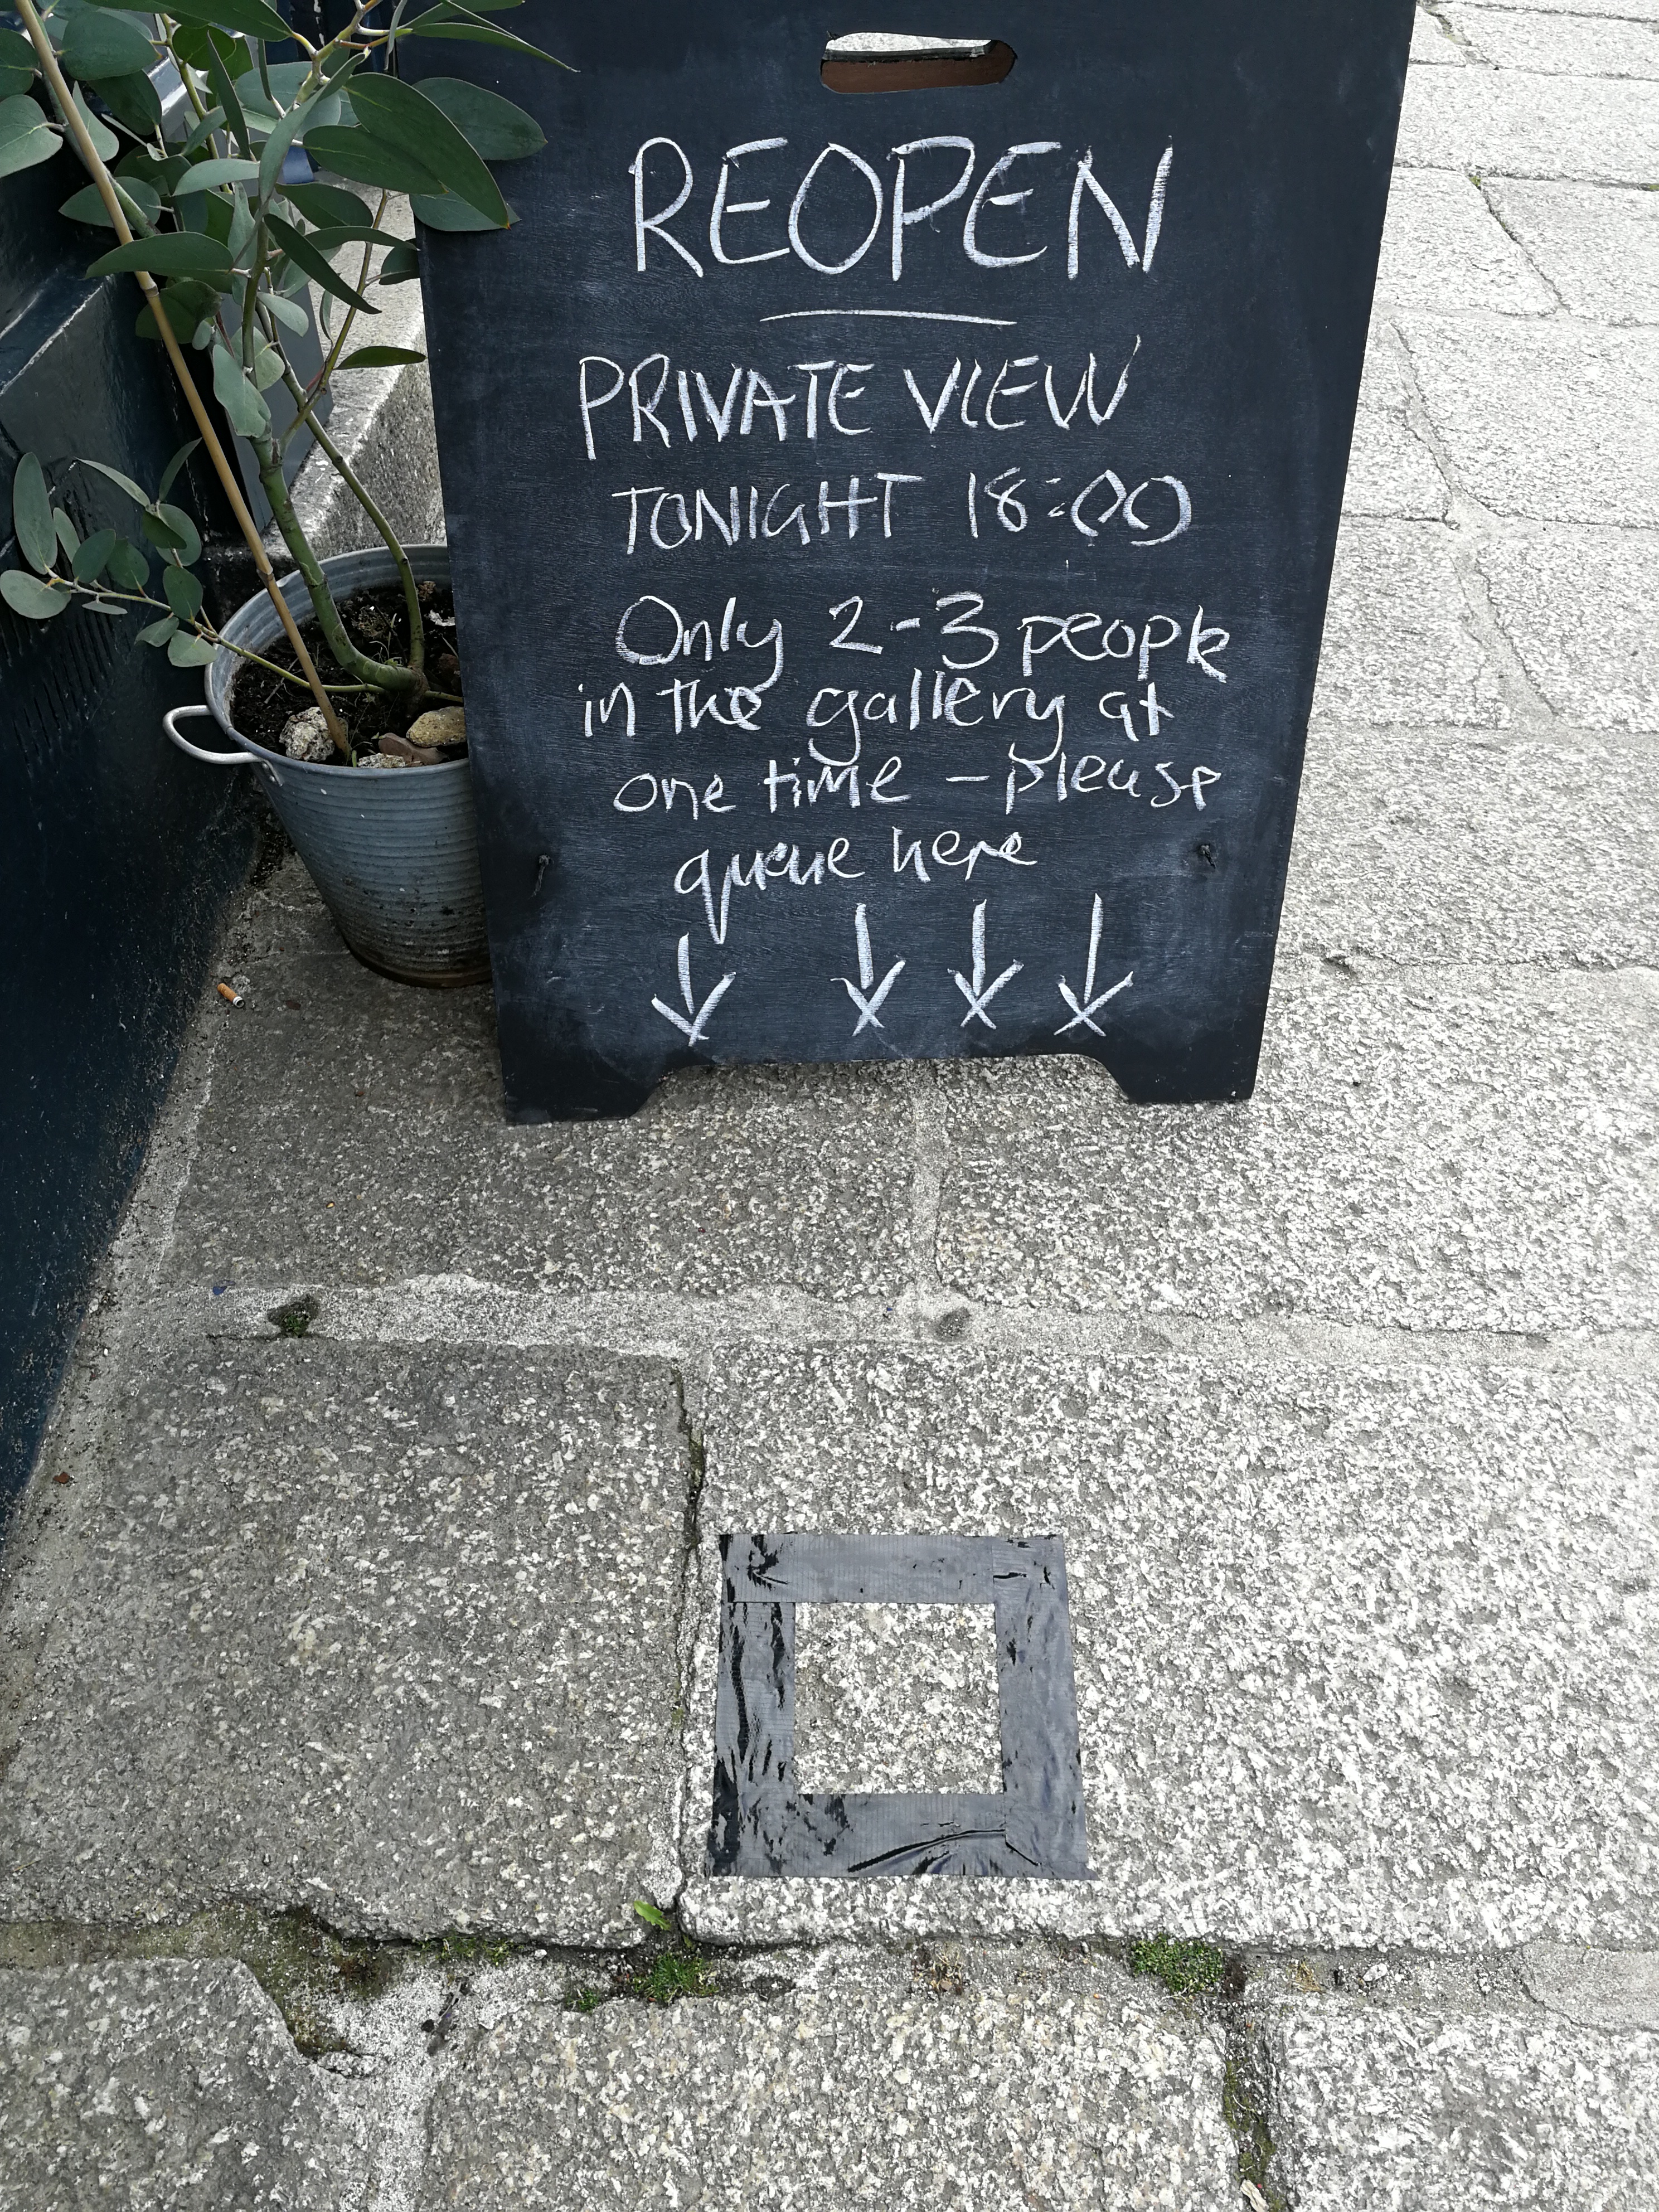 REOPEN
PRIVATE VIEW
TONIGHT 18:00
Only 2-3 people
in the gallery at
one time - please
queue here